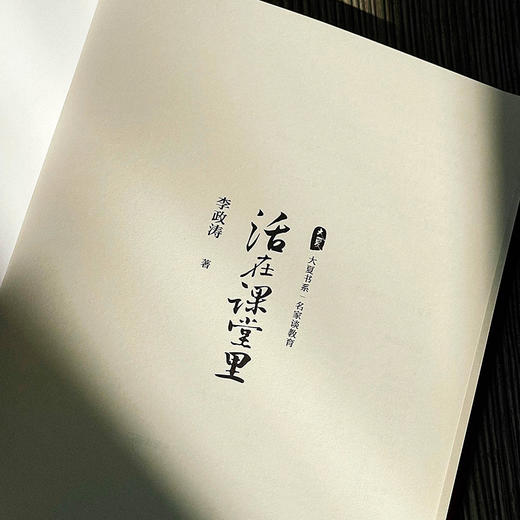 大夏
大夏书系 | 名家谈教育
活在课堂里
李政涛 著